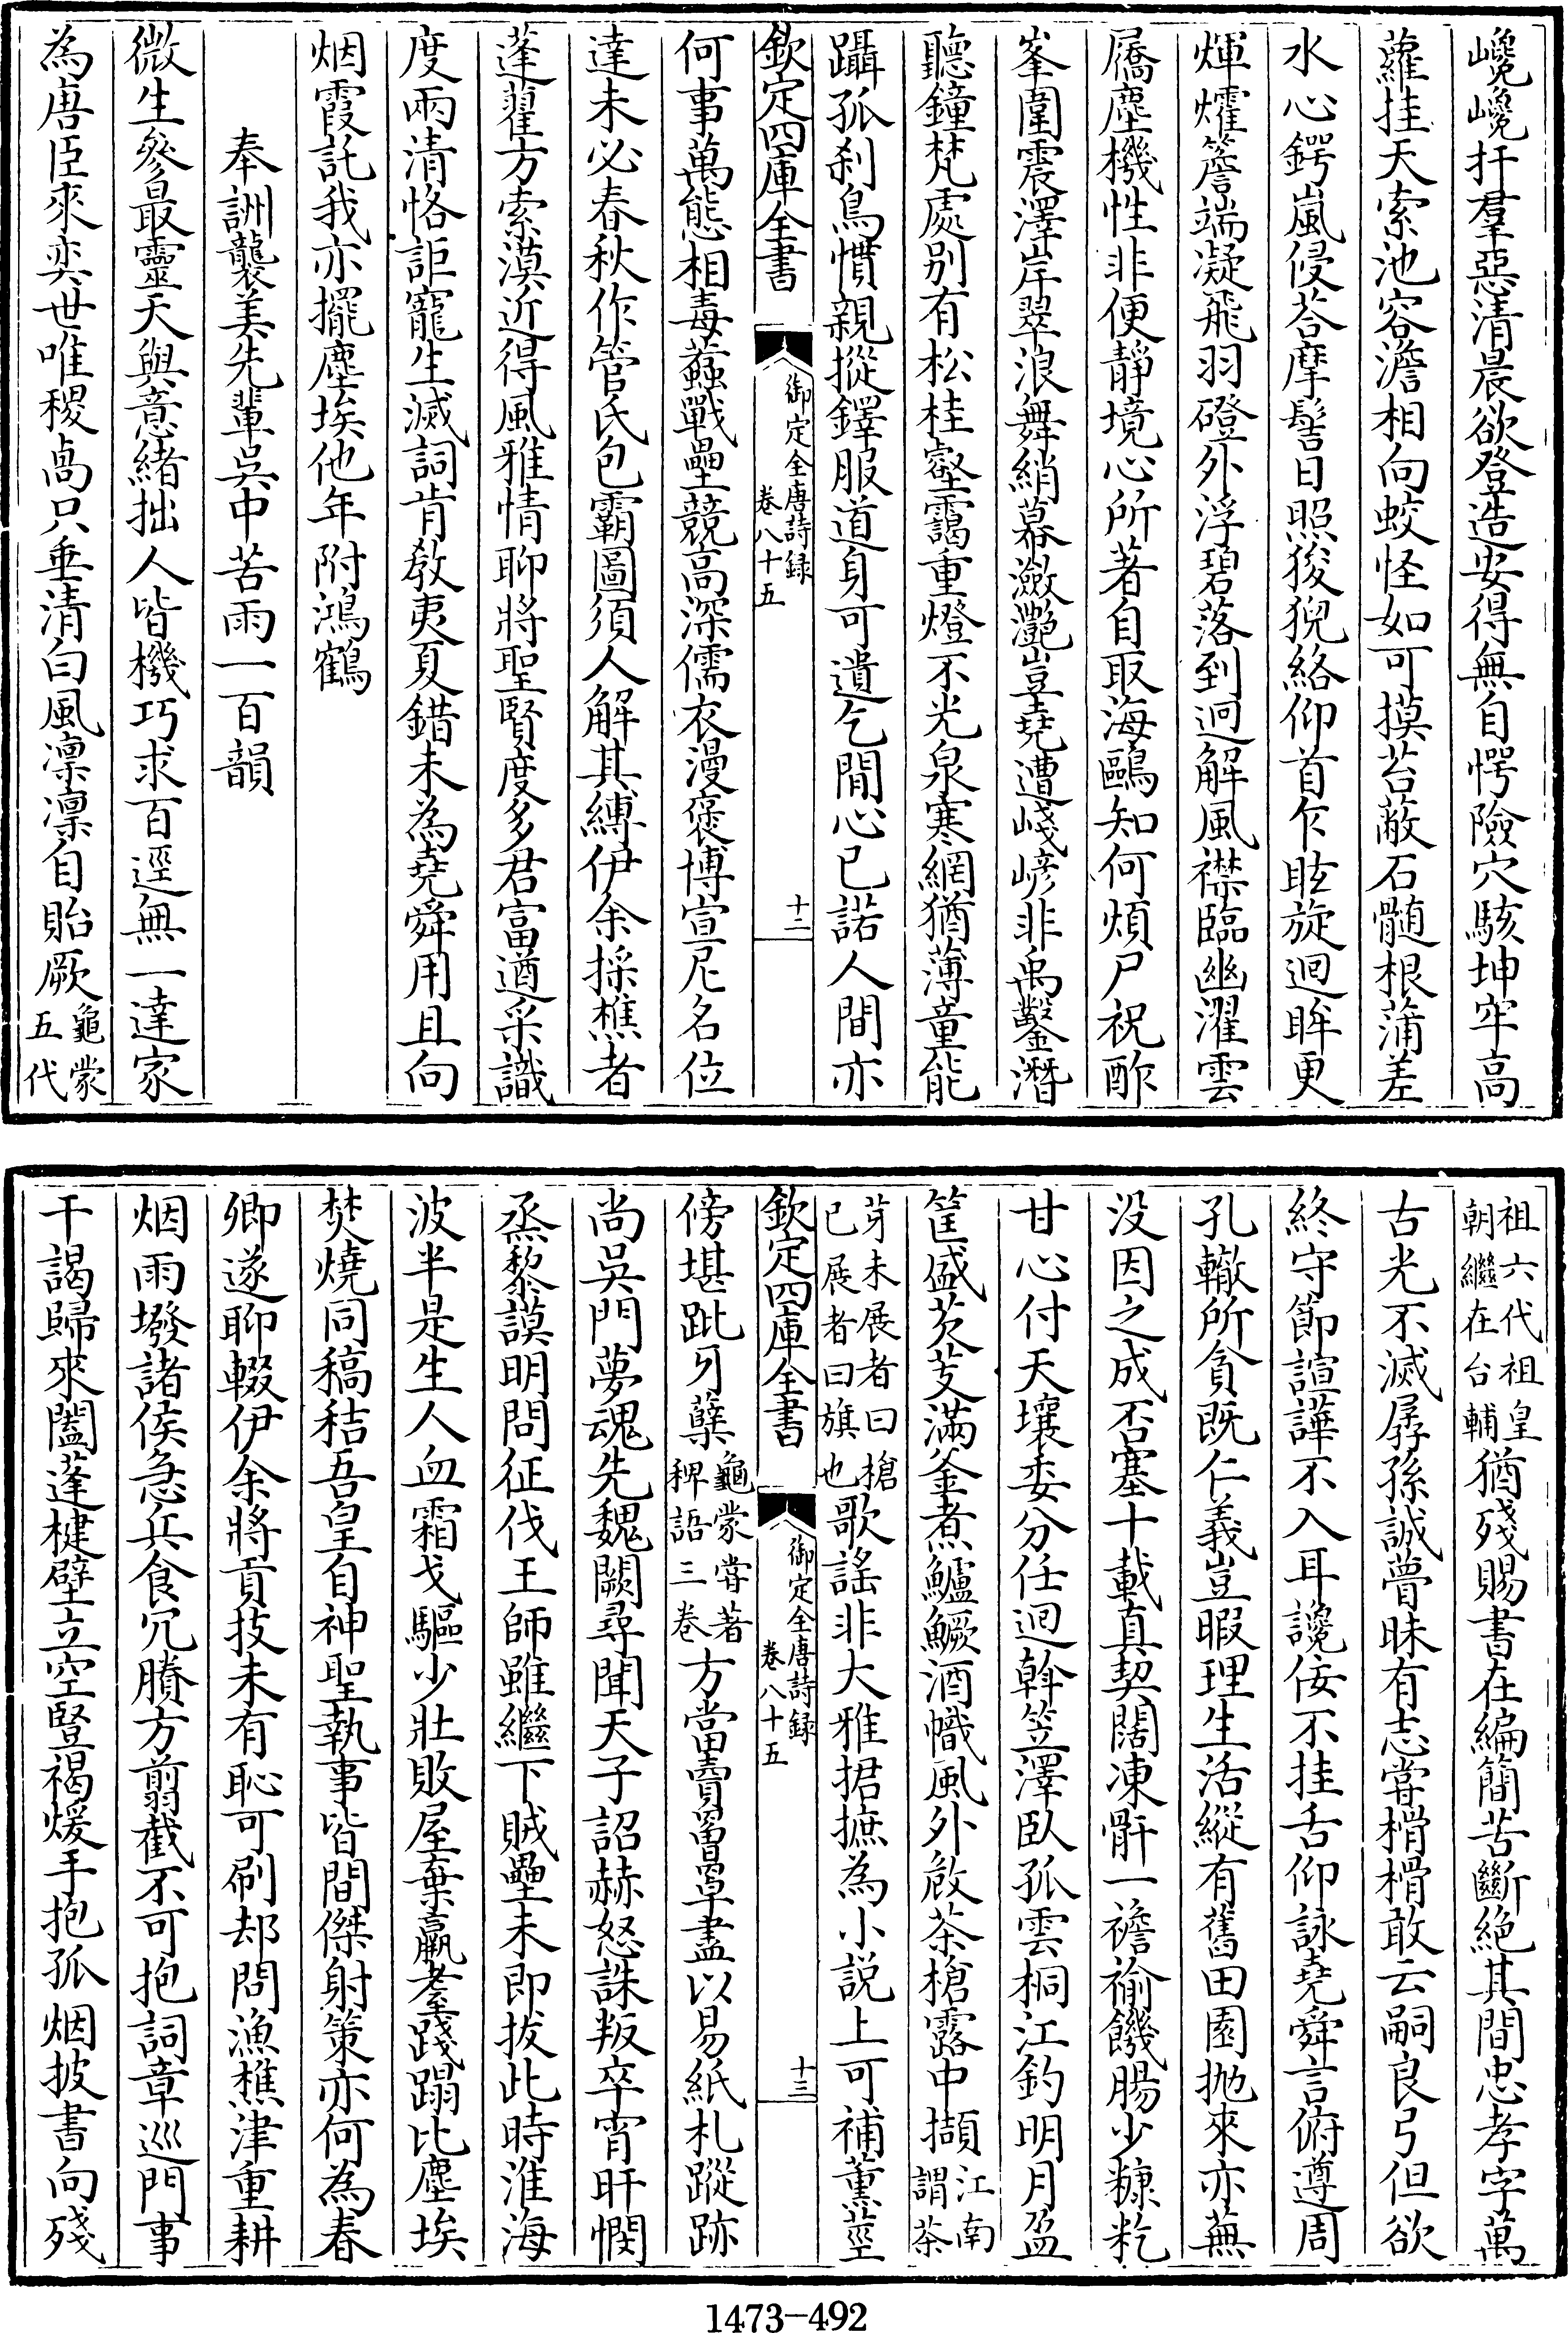 巉巉扞羣惡清晨欲登造安得無自愕險穴駭坤牢高
蘿挂天索池容澹相向蛟怪如可摸苔蔽石髓根蒲差
水心鍔嵐侵荅摩髻日照狻猊絡仰首乍眩旋迴眸更
煇燿簷端凝飛羽磴外浮碧落到迥解風襟臨幽濯雲
屩塵機性非便靜境心所著自取海鷗知何煩尸祝酢
峯圍震澤岸翠浪舞綃幕瀲灩豈堯遭嶘嵃非禹鑿潛
聽鐘梵處别有松桂壑靄重燈不光泉寒網猶薄童能
躡孤刹鳥慣親摐鐸服道身可遺乞閒心已諾人間亦
欽定四庫全書
御定全唐詩録
卷八十五
十二
何事萬態相毒蠚戰壘競高深儒衣漫褒博宣尼名位
達未必春秋作管氏包霸圖須人解其縛伊余採樵者
蓬藋方索漠近得風雅情聊將聖賢度多君富遒采識
度兩清恪詎寵生滅詞肯教夷夏錯未為堯舜用且向
烟霞託我亦擺塵埃他年附鴻鶴
奉詶襲美先輩吳中苦雨一百韻
微生參最靈天與意緒拙人皆機巧求百逕無一達家
為唐臣來奕世唯稷卨只垂清白風凛凛自貽厥龜蒙
五代
祖六代祖皇
朝繼在台輔猶殘賜書在編簡苦斷絶其間忠孝字萬
古光不滅孱孫誠瞢昧有志嘗榾榾敢云嗣良弓但欲
終守節諠譁不入耳讒佞不挂舌仰詠堯舜言俯遵周
孔轍所貪既仁義豈暇理生活縱有舊田園抛來亦蕪
没因之成否塞十載真契闊凍骭一襜褕饑腸少糠籺
甘心付天壤委分任迴斡笠澤臥孤雲桐江釣明月盈
筐盛芡芰滿釜煮鱸鱖酒幟風外㪃茶槍露中擷江南
謂茶
芽未展者曰槍
已展者曰旗也歌謠非大雅捃摭為小説上可補薰莖
欽定四庫全書
御定全唐詩録
卷八十五
十三
傍堪跐㔾蘖龜蒙嘗著
稗語三卷方當賣罾罩盡以易紙札蹤跡
尚吳門夢魂先魏闕尋聞天子詔赫怒誅叛卒宵旰憫
烝黎謨明問征伐王師雖繼下賊壘未即拔此時淮海
波半是生人血霜戈驅少壯敗屋棄羸耋踐蹋比塵埃
焚燒同稿秸吾皇自神聖執事皆間傑射策亦何為春
卿遂聊輟伊余將貢技未有恥可刷却問漁樵津重耕
烟雨墢諸侯急兵食冗賸方翦截不可抱詞章巡門事
干謁歸來闔蓬楗壁立空豎褐煖手抱孤烟披書向殘
1473-492